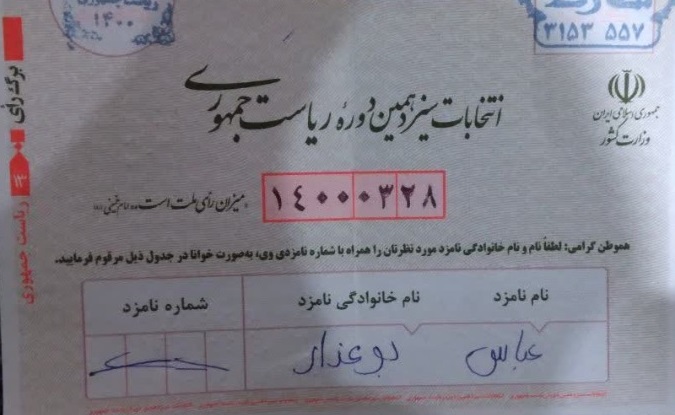 ریاست جمهوری
۱۴۰۰
۳۱۵۳ ۵۵۷
برگ رأی
۱۳
ریاست جمهوری
جمهوری اسلامی ایران
وزارت کشور
انتخابات سیزدهمین دورهٔ ریاست جمهوری
۱۴۰۰۰۳۲۸
میزان رأی ملت است. امام خمینی (ره)
هموطن گرامی: لطفاً نام و نام خانوادگی نامزد مورد نظرتان را همراه با شماره نامزدی وی، به‌صورت خوانا در جدول ذیل مرقوم فرمایید.
نام نامزد نام خانوادگی نامزد شماره نامزد
عباس بوعذار